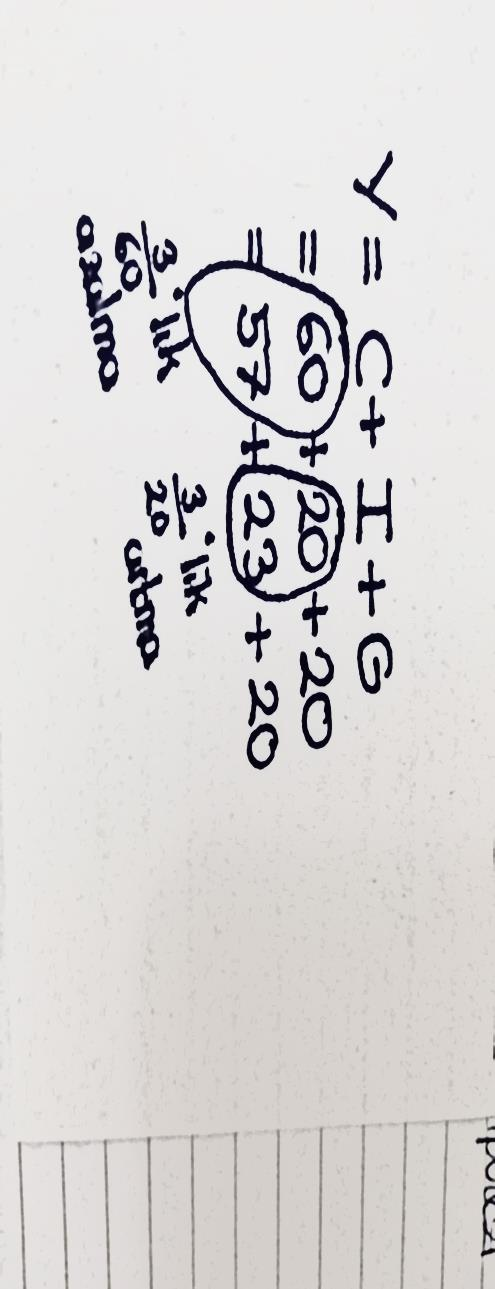 Y = C + I + G
= 60 + 20 + 20
= 57 + 23 + 20
3/60 'lık azalma
3/20 'lik artma